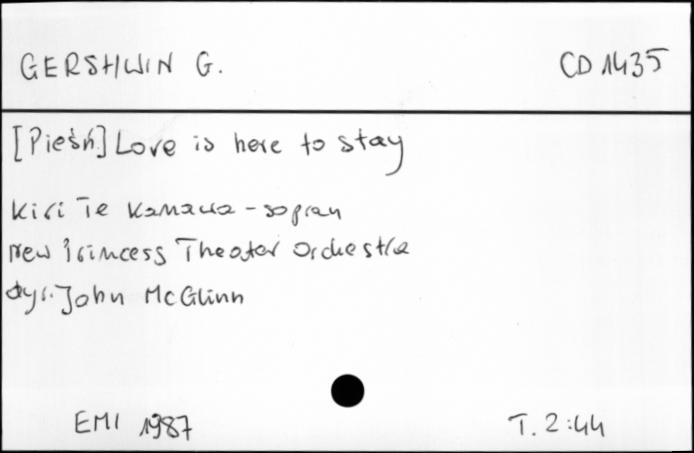 GERSHWIN G. CD 1435
[Pieśń] Love is here to stay
Kiri Te Kanawa - sopran
New Princess Theater Orchestra
dyr. John McGlinn
EMI 1987 T. 2:44